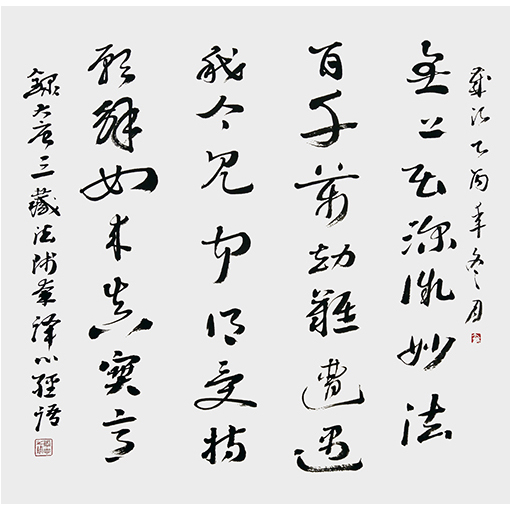 歲次乙酉年冬月
無上甚深微妙法
百千萬劫難遭遇
我今見聞得受持
願解如來真實
錄大唐三藏法師奘譯心經